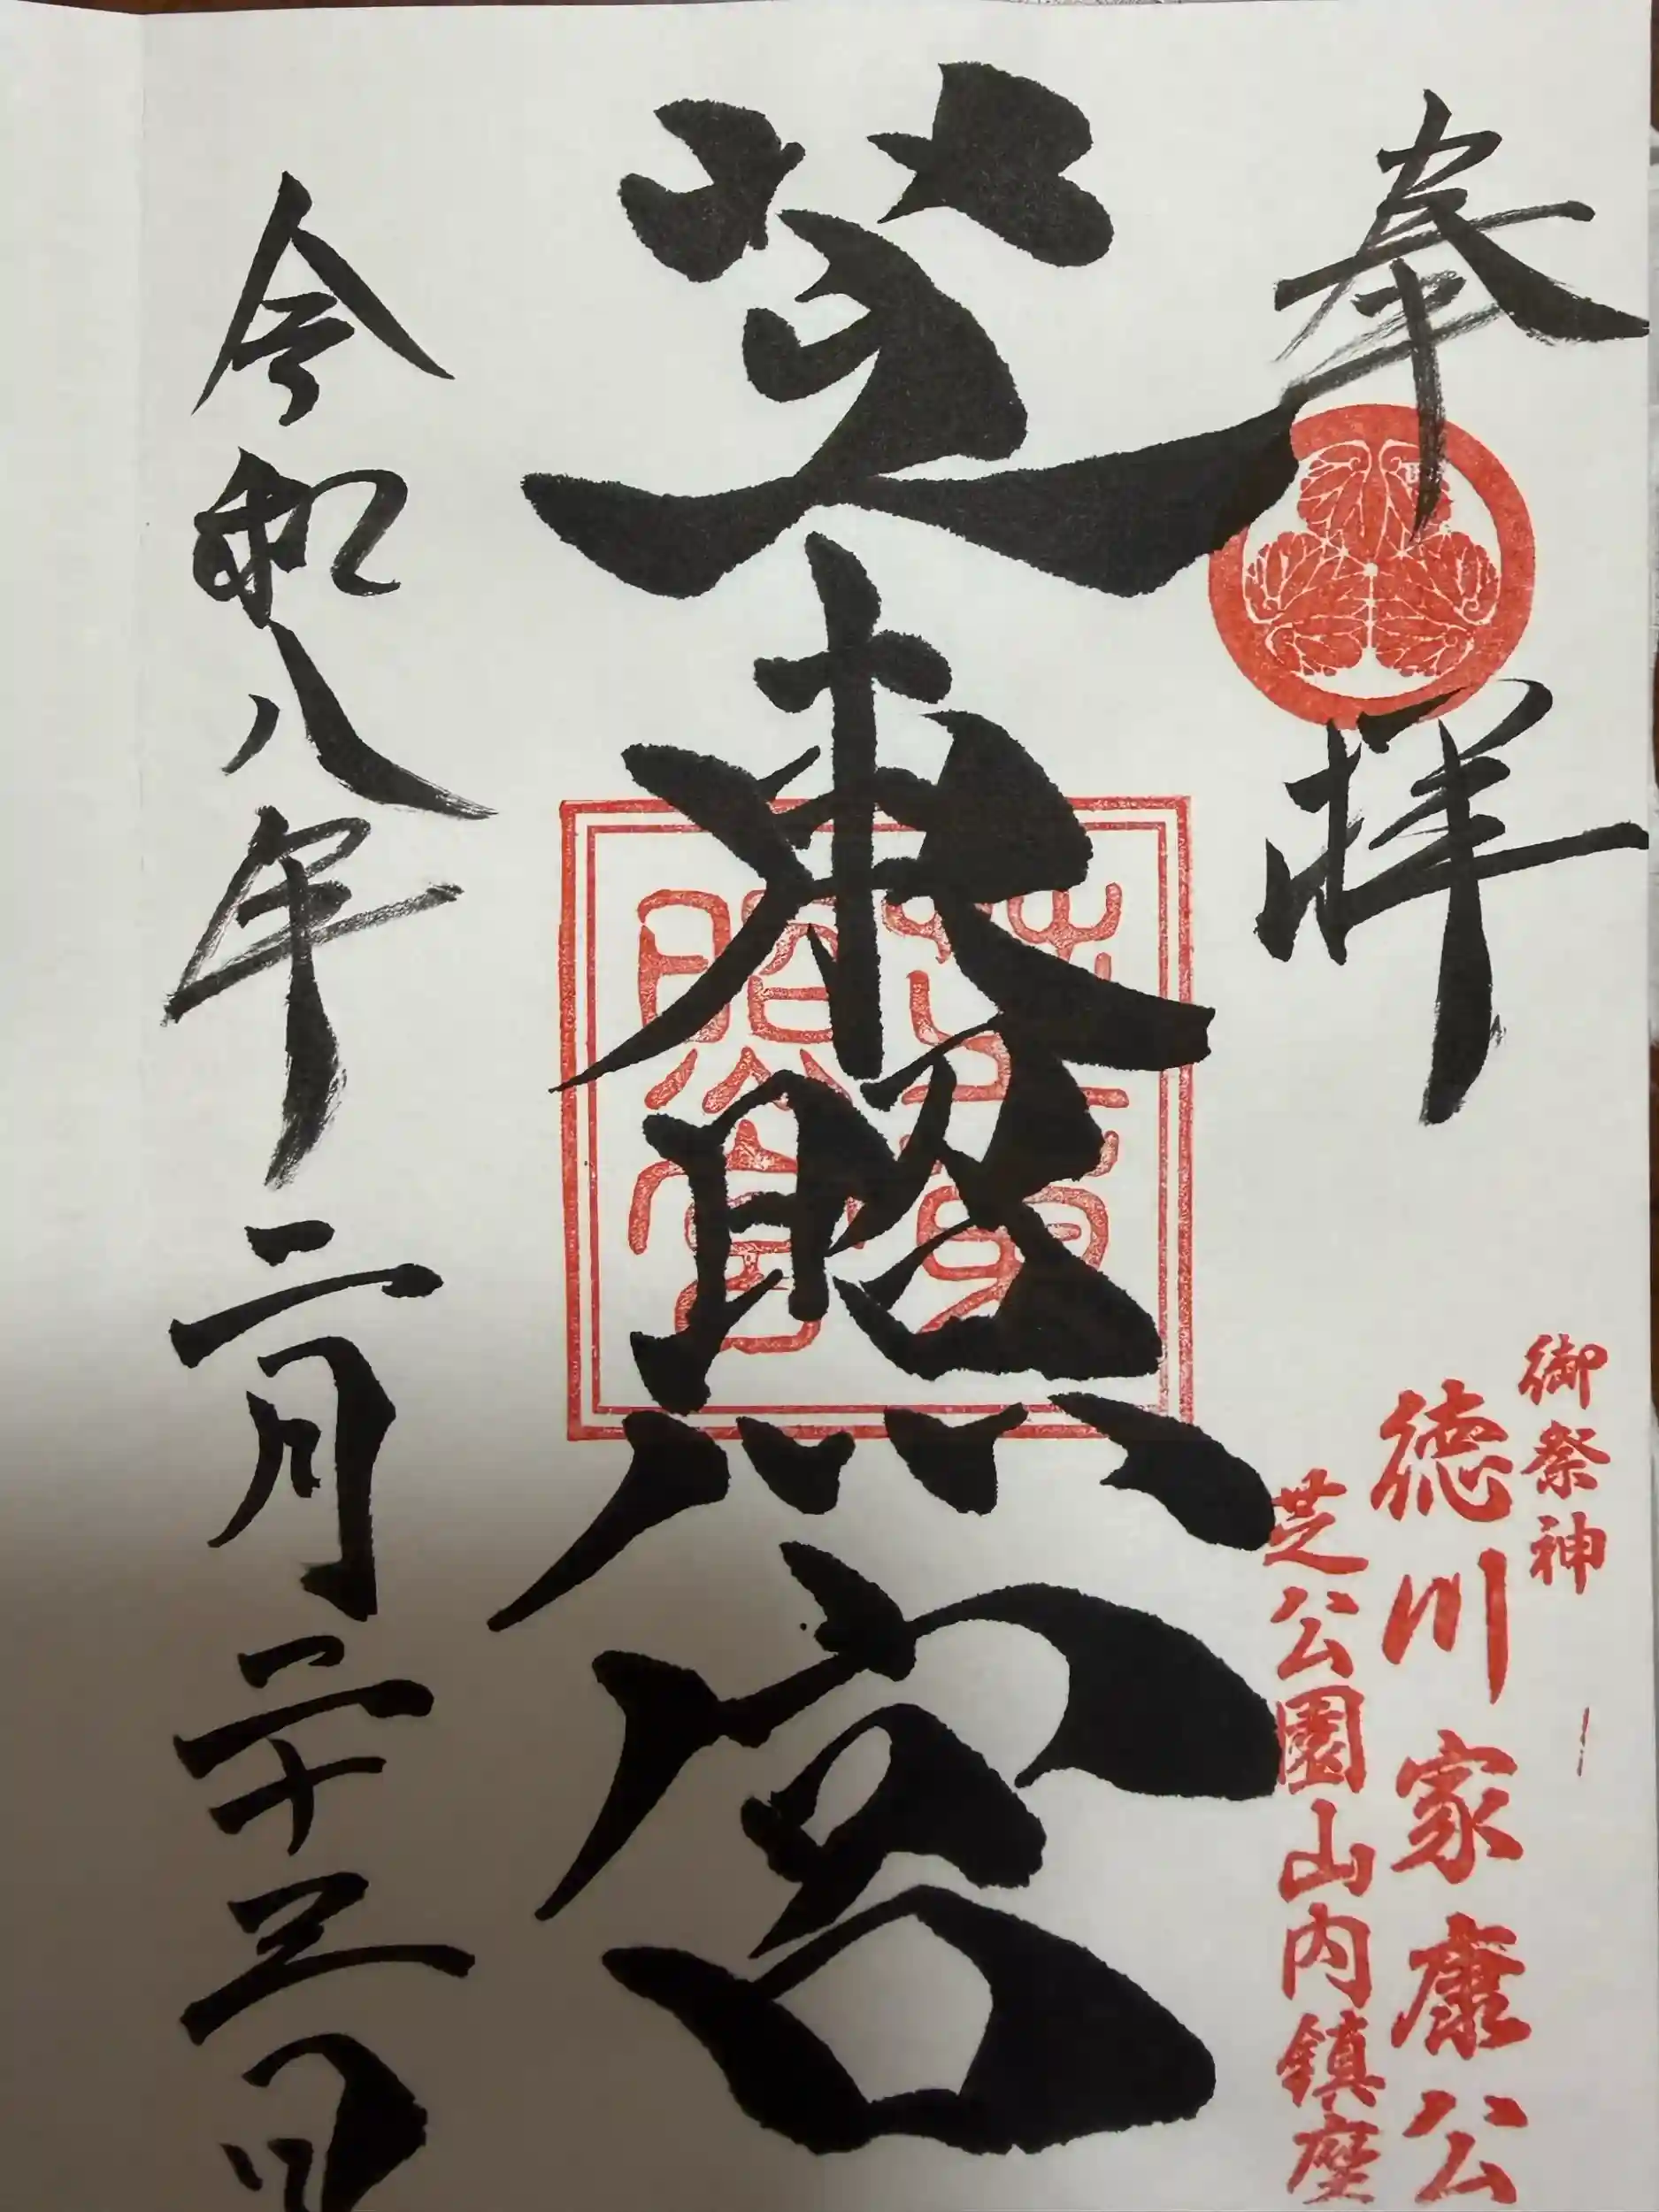 奉拝
御祭神
徳川家康公
芝公園山内鎮座
芝東照宮
芝東照宮
令和八年二月二十三日